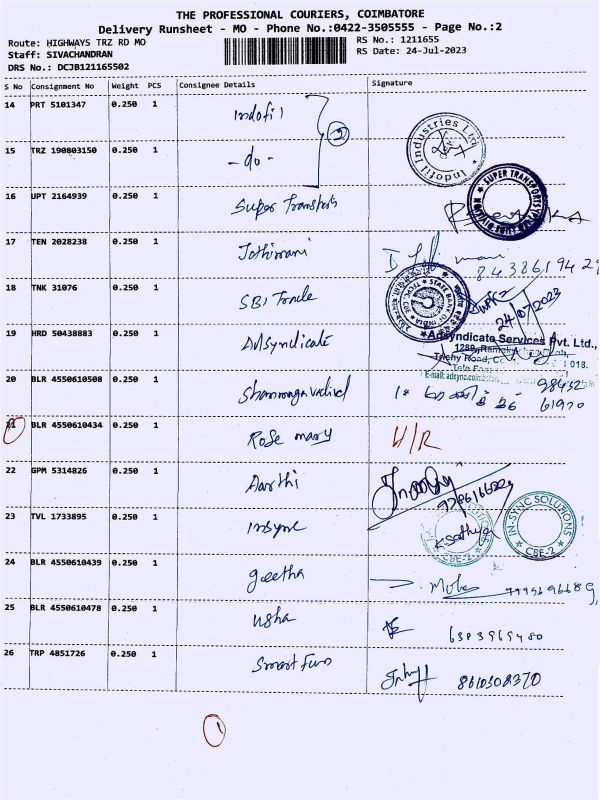 THE PROFESSIONAL COURIERS, COIMBATORE
Delivery Runsheet - MO - Phone No.:0422-3505555 - Page No.:2
Route: HIGHWAYS TRZ RD MO
RS No.: 1211655
Staff: SIVACHANDRAN
RS Date: 24-Jul-2023
DRS No.: DCJB121165502
S No Consignment No Weight PCS Consignee Details Signature
14 PRT 5101347 0.250 1 Indofil
2
Indofil Industries Ltd
15 TRZ 190803150 0.250 1 - do -
16 UPT 2164939 0.250 1 Super Transports
SUPER TRANSPORTS
17 TEN 2028238 0.250 1 Jothimani
18 TNK 31076 0.250 1 SBI Trade
24/07/2023
19 HRD 50438883 0.250 1 Adsyndicate
Adsyndicate Services Pvt. Ltd.,
Trichy Road,
018.
20 BLR 4550610508 0.250 1 Shanmugavadivel
98432
61970
21 BLR 4550610434 0.250 1 Rose mary H/R
22 GPM 5314826 0.250 1 Aarthi
23 TVL 1733895 0.250 1 Insync
K Sathya
IN-SYNC SOLUTIONS
CBE-2
24 BLR 4550610439 0.250 1 geetha
25 BLR 4550610478 0.250 1 usha
6383969480
26 TRP 4851726 0.250 1 Smart Fun
8610308370
1